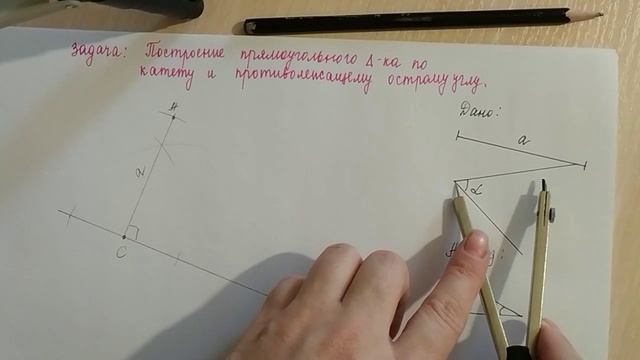 Задача: Построение прямоугольного Δ-ка по
катету и противолежащему острому углу.
Дано:
a
α
A
a
C